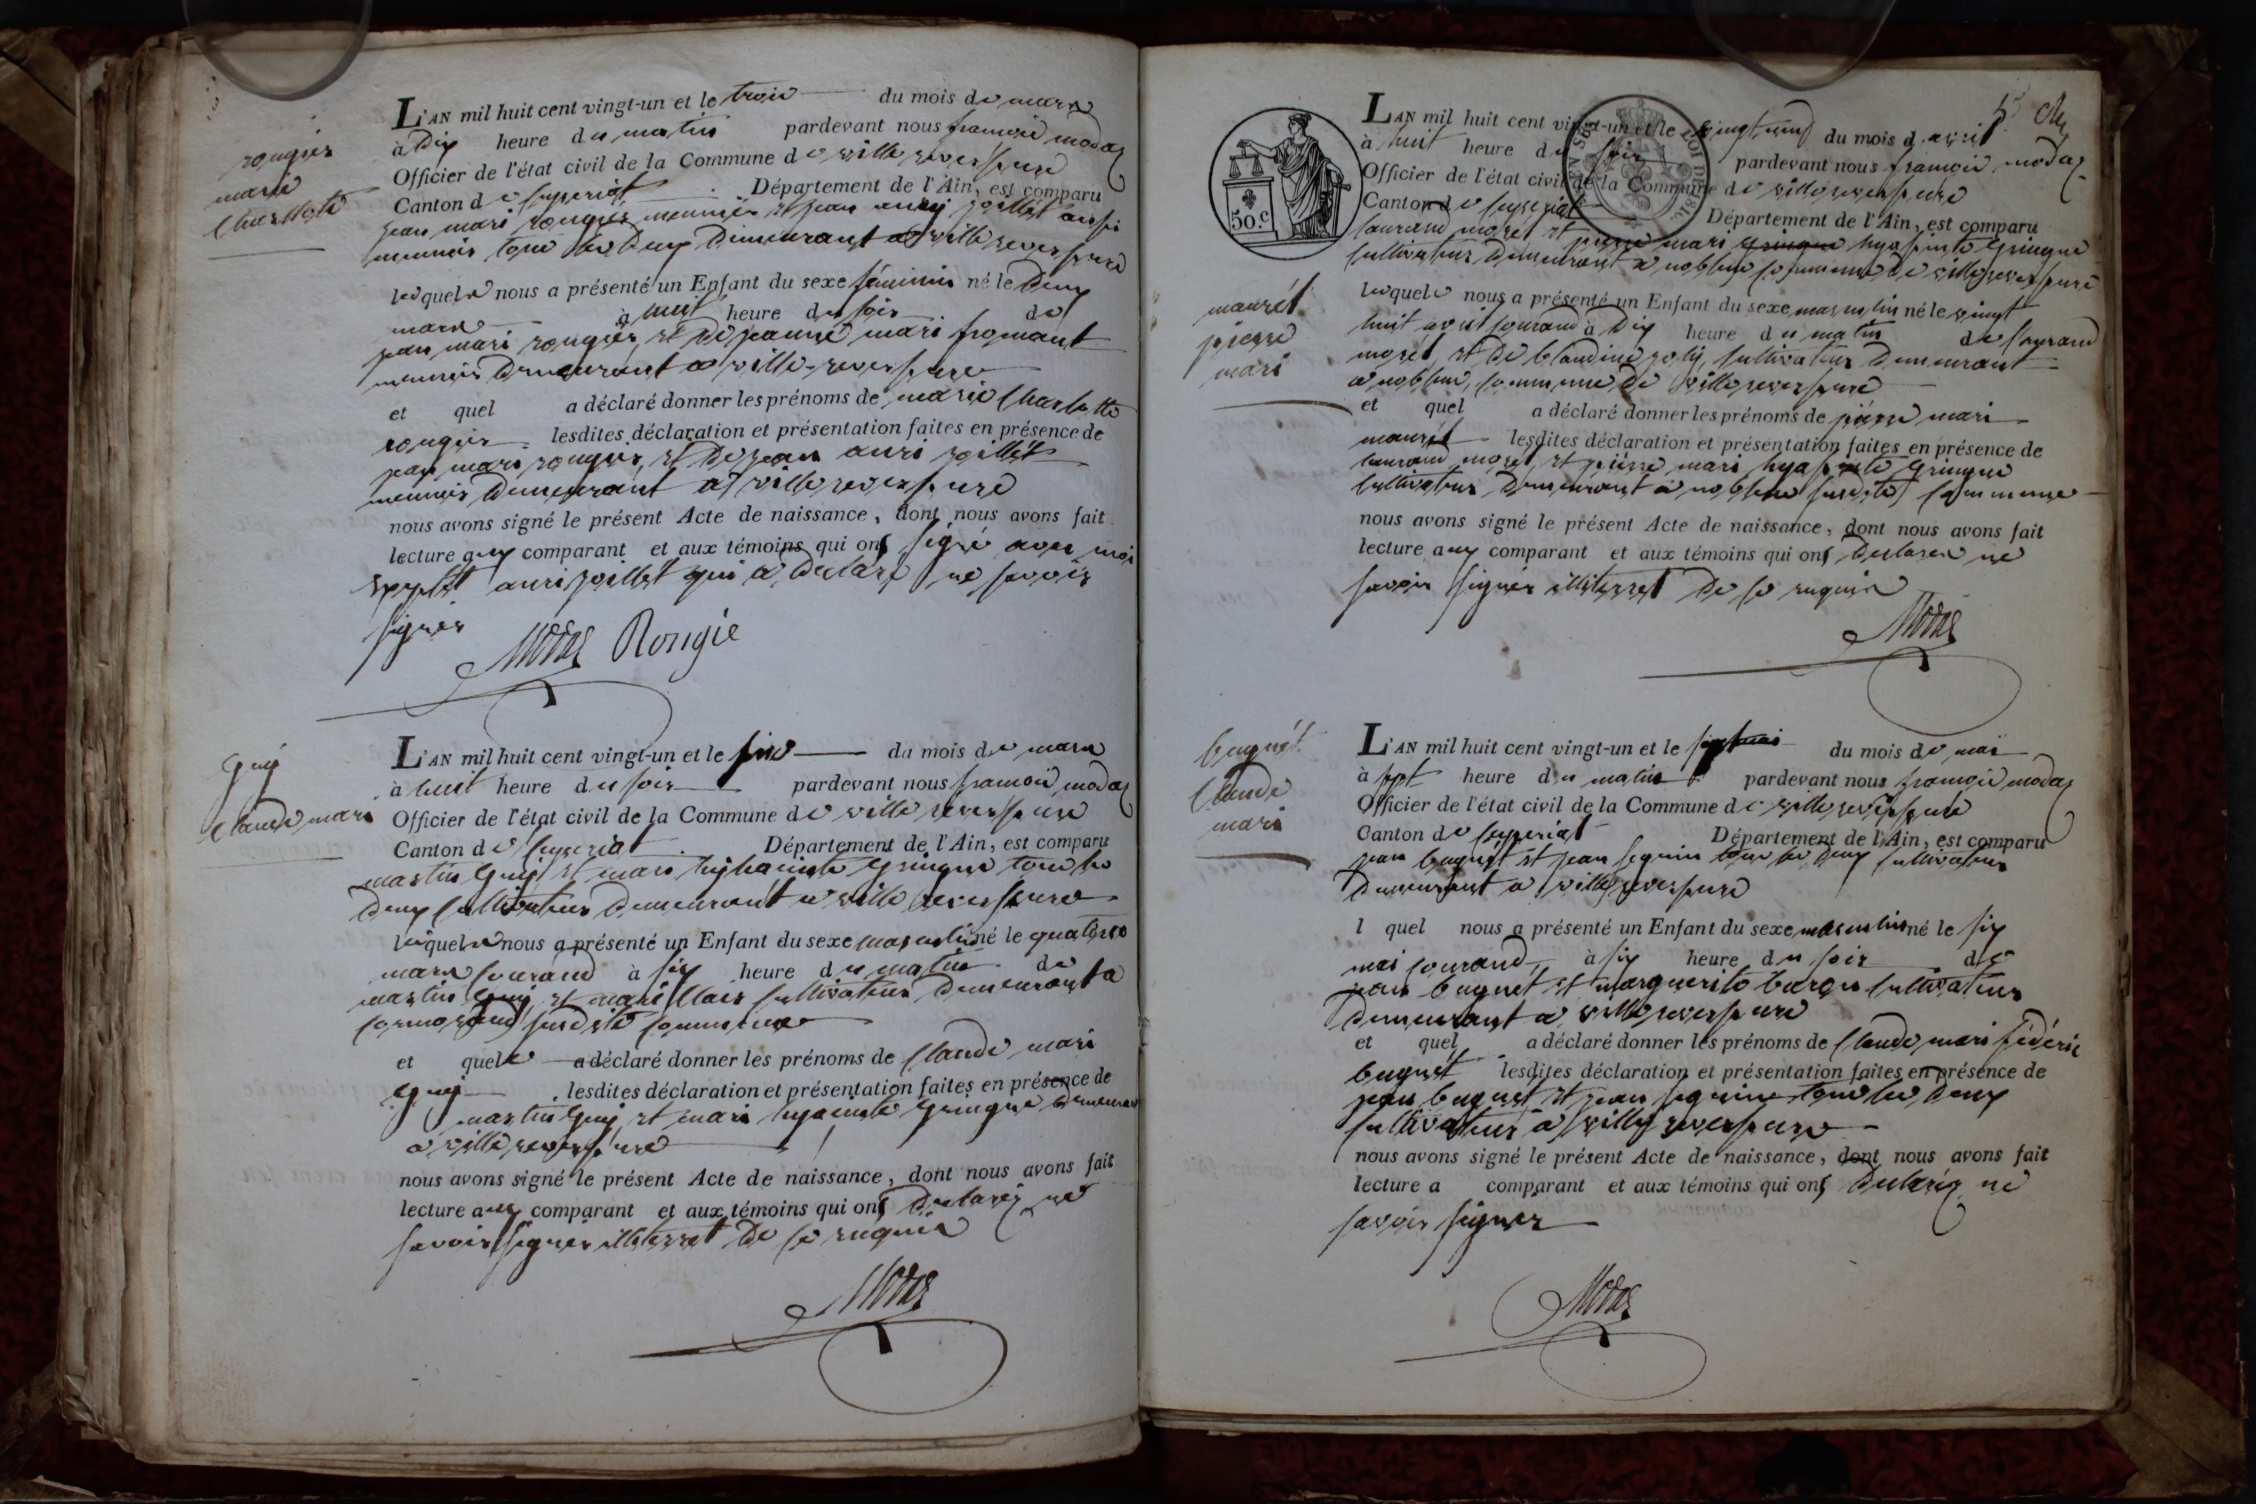 rougier
marie
Charllote
L'AN mil huit cent vingt-un et le trois du mois de mars
à Dix heure du matin pardevant nous françois modas
Officier de l'état civil de la Commune de ville reversure
Canton de Ceyseriat. Département de l'Ain, est comparu
jean mari rougier meunier et jean auri joillet aussi
meunier tous les Deux Demeurant a ville reversure
lesquels nous a présenté un Enfant du sexe féminin né le Deux
mars à huit heure du soir de
jean mari rougier, et De jeanne mari fromant
meunier Demeurant a ville-reversure
et quel a déclaré donner les prénoms de marie Charlotte
rougier lesdites déclaration et présentation faites en présence de
jean mari rougier, et De jean auri joillet
meunier Demeurant a ville reversure
nous avons signé le présent Acte de naissance, dont nous avons fait
lecture aux comparant et aux témoins qui ont signé avec moi
exepté auri joillet qui a Déclaré ne savoir
signer
Modas Rougie
Guy
Claude mari
L'AN mil huit cent vingt-un et le du mois de mars
à huit heure du soir pardevant nous françois modas
Officier de l'état civil de la Commune de ville reversure
Canton de Ceyseriat. Département de l'Ain, est comparu
martin Guy et mari hyhacinte Gringue tous les
Deux Cultivateur Demeurant a ville reversure
lesquels nous a présenté un Enfant du sexe masculin né le quatorze
mars Courand à six heure du matin de
martin Guy et mari Clair Cultivateur Demeurant a
Cormorand susdite Commune
et quel a déclaré donner les prénoms de Claude mari
Guy lesdites déclaration et présentation faites en présence de
martin Guy et mari hyacinte Gringue Demeurant
a ville reversure
nous avons signé le présent Acte de naissance, dont nous avons fait
lecture aux comparant et aux témoins qui ont Déclarez ne
savoir signer illiterret De ce requis
Modas
5
50.c
L'AN mil huit cent vingt-un et le vingt neuf du mois d avril
à huit heure du soir pardevant nous françois modas
Officier de l'état civil de la Commune de ville reversure
Canton de Ceyseriat Département de l'Ain, est comparu
Laurand moret et pierre mari gringue hyasinte Gringue
Cultivateur Demeurant a noblens Commune De ville reversure
maurét
pierre
mari
lesquels nous a présenté un Enfant du sexe masculin né le vingt
huit avril Courand à Dix heure du matin de Laurand
moret, et De blandine joly, Cultivateur Demeurant
a noblens, Commune De ville reversure
et quel a déclaré donner les prénoms de pierre mari
maurét lesdites déclaration et présentation faites en présence de
Laurand moret, et pierre mari hyasinte Gringue
Cultivateur Demeurant a noblens susdite Commune
nous avons signé le présent Acte de naissance, dont nous avons fait
lecture aux comparant et aux témoins qui ont Déclarer ne
savoir signer illiterret De ce requis
Modas
buguét
Claude
mari
L'AN mil huit cent vingt-un et le du mois de mai
à sept heure du matin pardevant nous françois modas
Officier de l'état civil de la Commune de ville reversure
Canton de Ceyseriat Département de l'Ain, est comparu
jean buguet et jean seguin tous les Deux Cultivateur
Demeurant a ville reversure
l quel nous a présenté un Enfant du sexe masculin né le six
mai Courand, à six heure du soir de
jean buguet et marguerite baron Cultivateur
Demeurant a ville reversure
et quel a déclaré donner les prénoms de Claude mari fédéric
buguét lesdites déclaration et présentation faites en présence de
jean buguet et jean seguin tous les Deux
Cultivateur a ville reversure
nous avons signé le présent Acte de naissance, dont nous avons fait
lecture a comparant et aux témoins qui ont Déclaréz ne
savoir signer
Modas